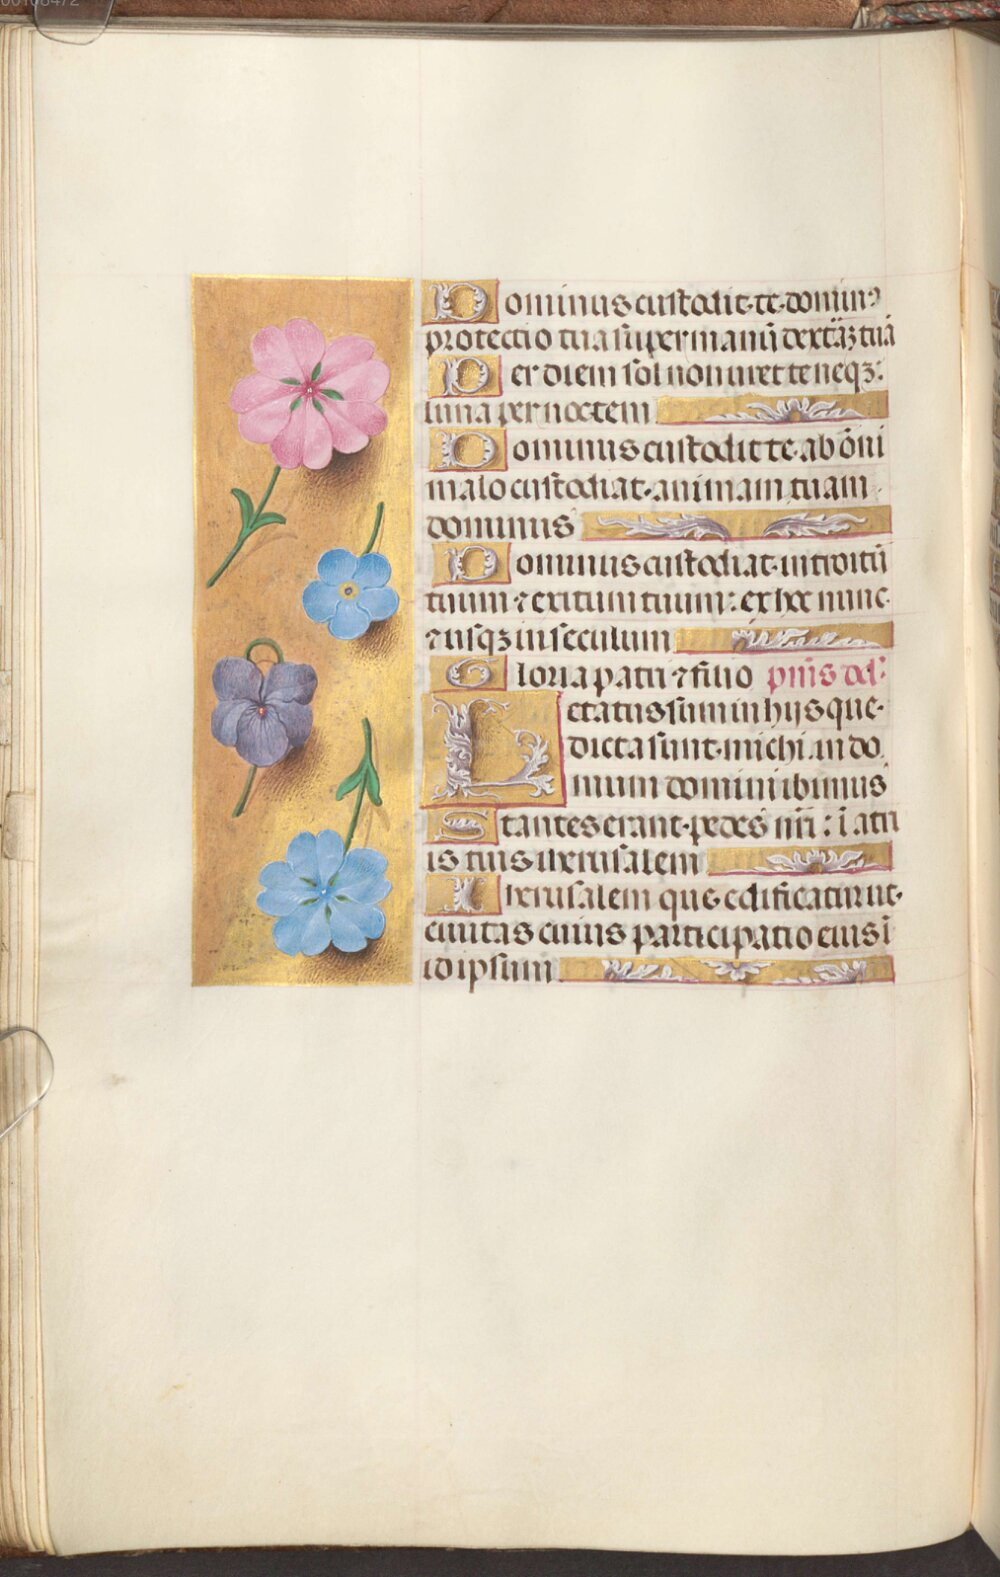 Dominus custodit te domin9
protectio tua super manū dexterāꝫ tuā
Per diem sol non uret te neqꝫ:
luna per noctem
Dominus custodit te ab ōni
malo custodiat animam tuam
dominus
Dominus custodiat introitū
tuum ⁊ exitum tuum: ex hoc nunc
⁊ usqꝫ in seculum
Gloria patri ⁊ filio pm̄s dd̄
Letatus sum in hijs que
dicta sunt michi in do
mum domini ibimus
Stantes erant pedes nr̄i: ī atri
is tuis iherusalem
Iherusalem que edificatur ut
ciuitas cuius participatio eius ī
idipsum